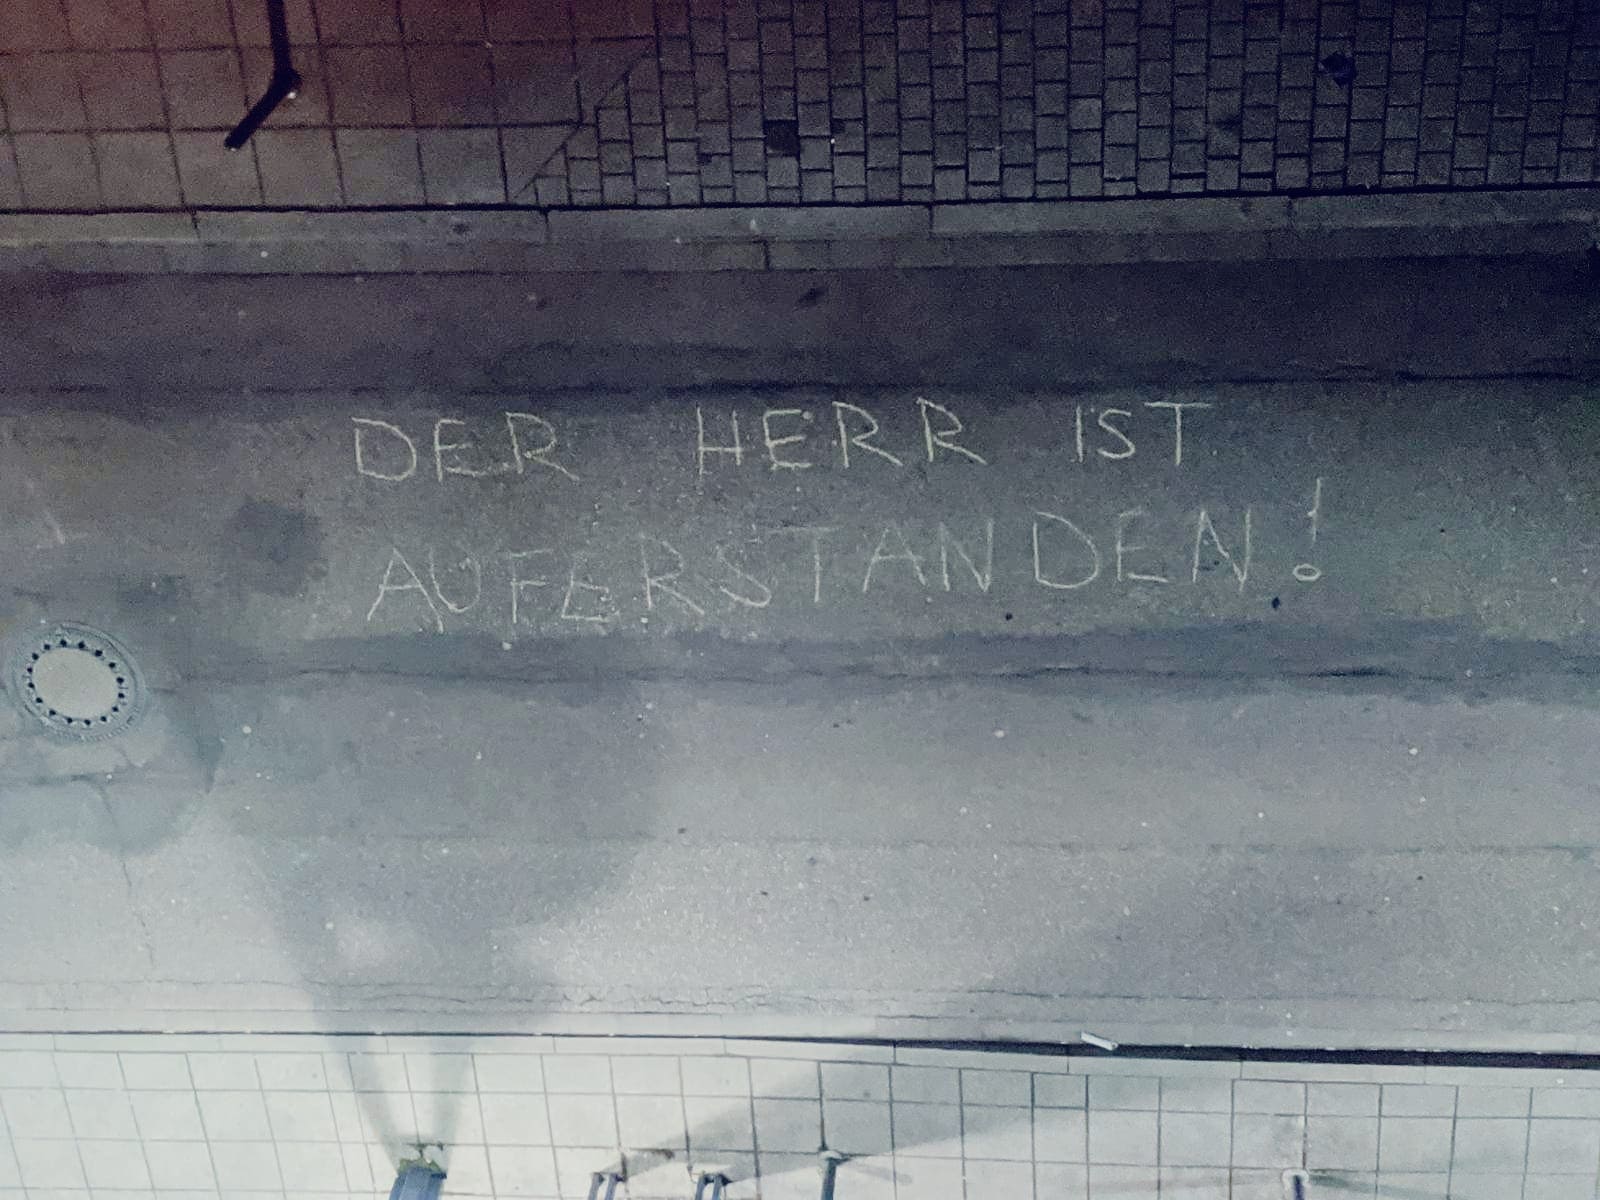 DER HERR IST
AUFERSTANDEN!